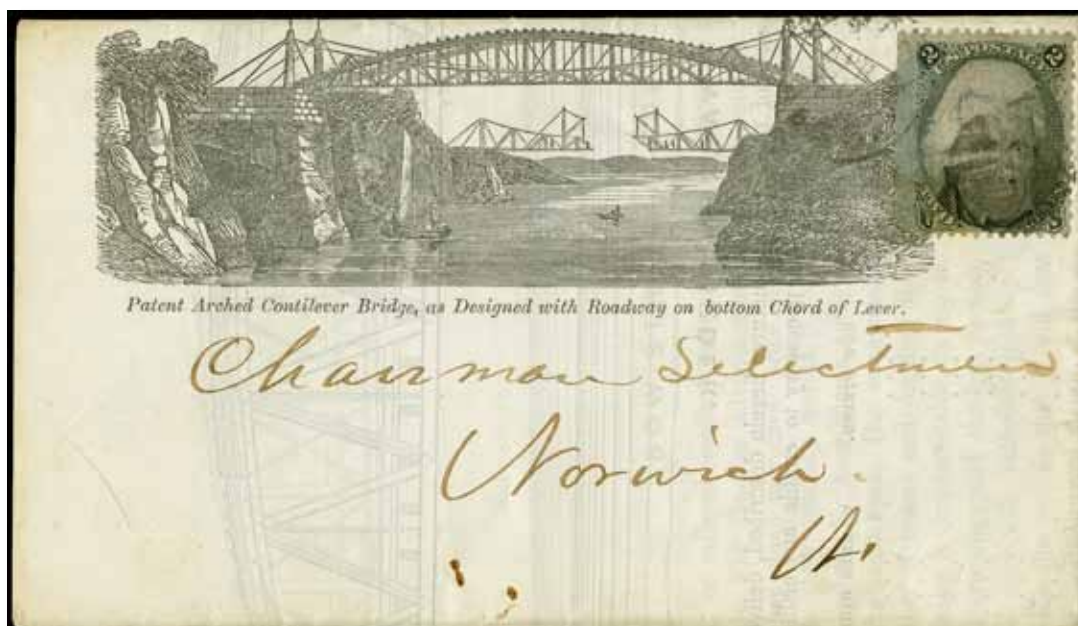 2 2
Patent Arched Contilever Bridge, as Designed with Roadway on bottom Chord of Lever.
Chairman Selectmen
Norwich.
Vt.